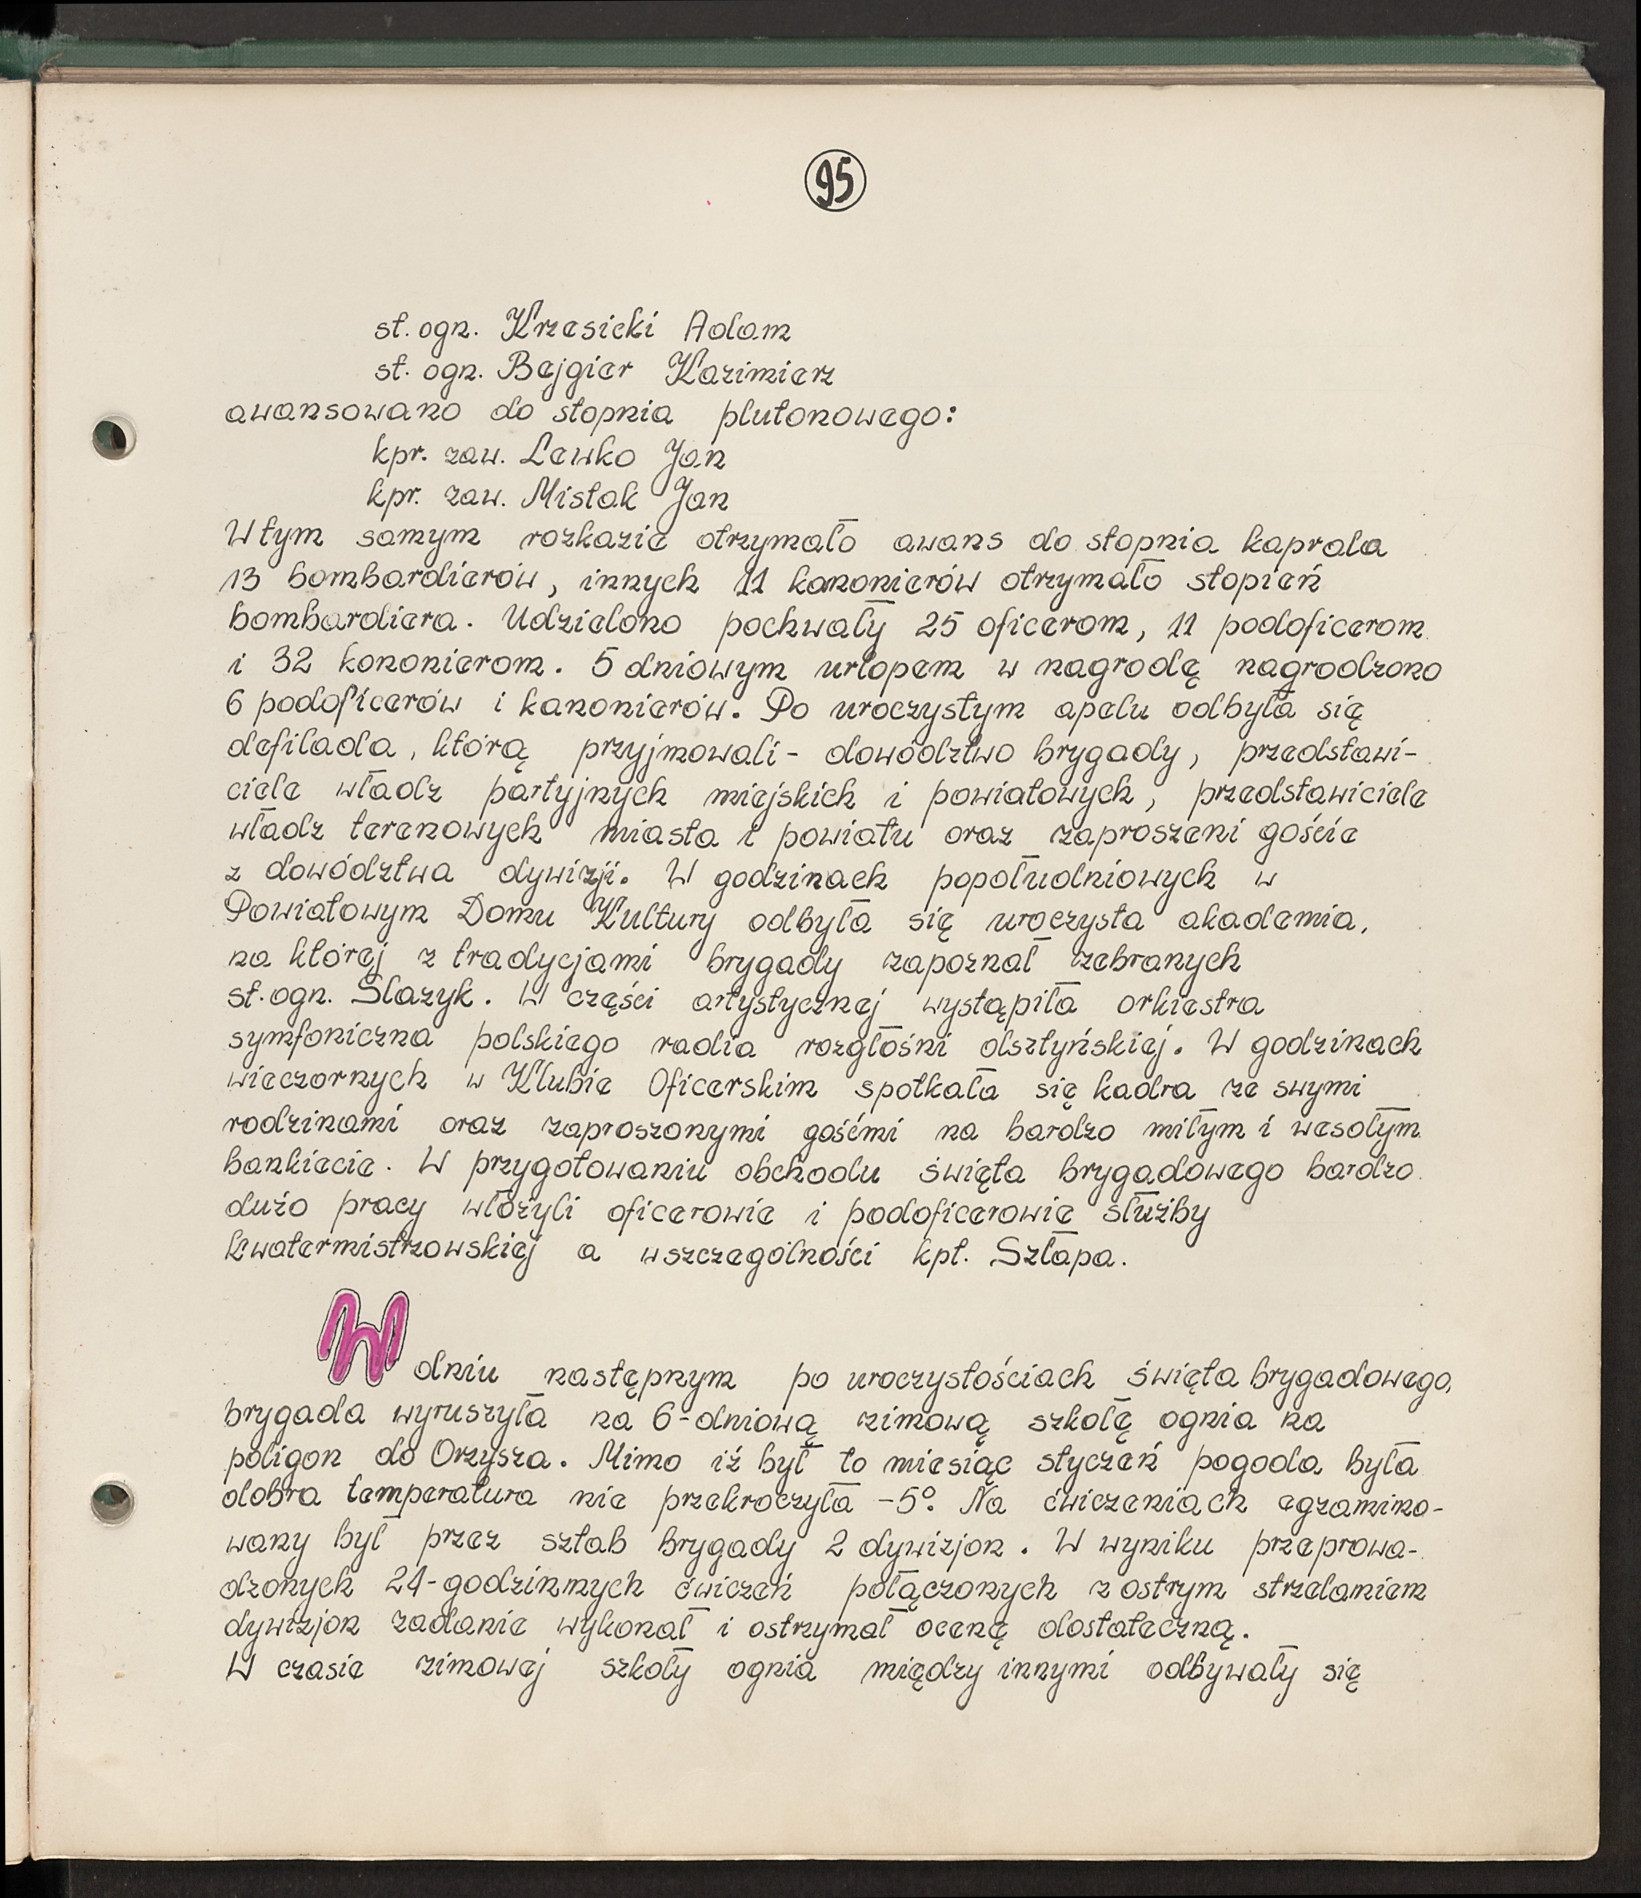 95
st. ogn. Krzesicki Adam
st. ogn. Bejgier Kazimierz
awansowano do stopnia plutonowego:
kpr. zaw. Lewko Jan
kpr. zaw. Mistak Jan
W tym samym rozkazie otrzymało awans do stopnia kaprala
13 bombardierów, innych 11 kanonierów otrzymało stopień
bombardiera. Udzielono pochwały 25 oficerom, 11 podoficerom
i 32 kononierom. 5 dniowym urlopem w nagrodę nagrodzono
6 podoficerów i kanonierów. Po uroczystym apelu odbyła się
defilada, którą przyjmowali - dowództwo brygady, przedstawi-
ciele władz partyjnych miejskich i powiatowych, przedstawiciele
władz terenowych miasta i powiatu oraz zaproszeni goście
z dowództwa dywizji. W godzinach popołudniowych w
Powiatowym Domu Kultury odbyła się uroczysta akademia,
na której z tradycjami brygady zapoznał zebranych
st. ogn. Slazyk. W części artystycznej wystąpiła orkiestra
symfoniczna polskiego radia rozgłośni olsztyńskiej. W godzinach
wieczornych w Klubie Oficerskim spotkała się kadra ze swymi
rodzinami oraz zaproszonymi gośćmi na bardzo miłym i wesołym
bankiecie. W przygotowaniu obchodu święta brygadowego bardzo
dużo pracy włożyli oficerowie i podoficerowie służby
kwatermistrzowskiej a wszczególności kpt. Szłapa.
W dniu następnym po uroczystościach święta brygadowego,
brygada wyruszyła na 6-dniową zimową szkołę ognia na
poligon do Orzysza. Mimo iż był to miesiąc styczeń pogoda była
dobra temperatura nie przekroczyła -5°. Na ćwiczeniach egzamino-
wany był przez sztab brygady 2 dywizjon. W wyniku przeprowa-
dzonych 24-godzinnych ćwiczeń połączonych z ostrym strzelaniem
dywizjon zadanie wykonał i ostrzymał ocenę dostateczną.
W czasie zimowej szkoły ognia między innymi odbywały się